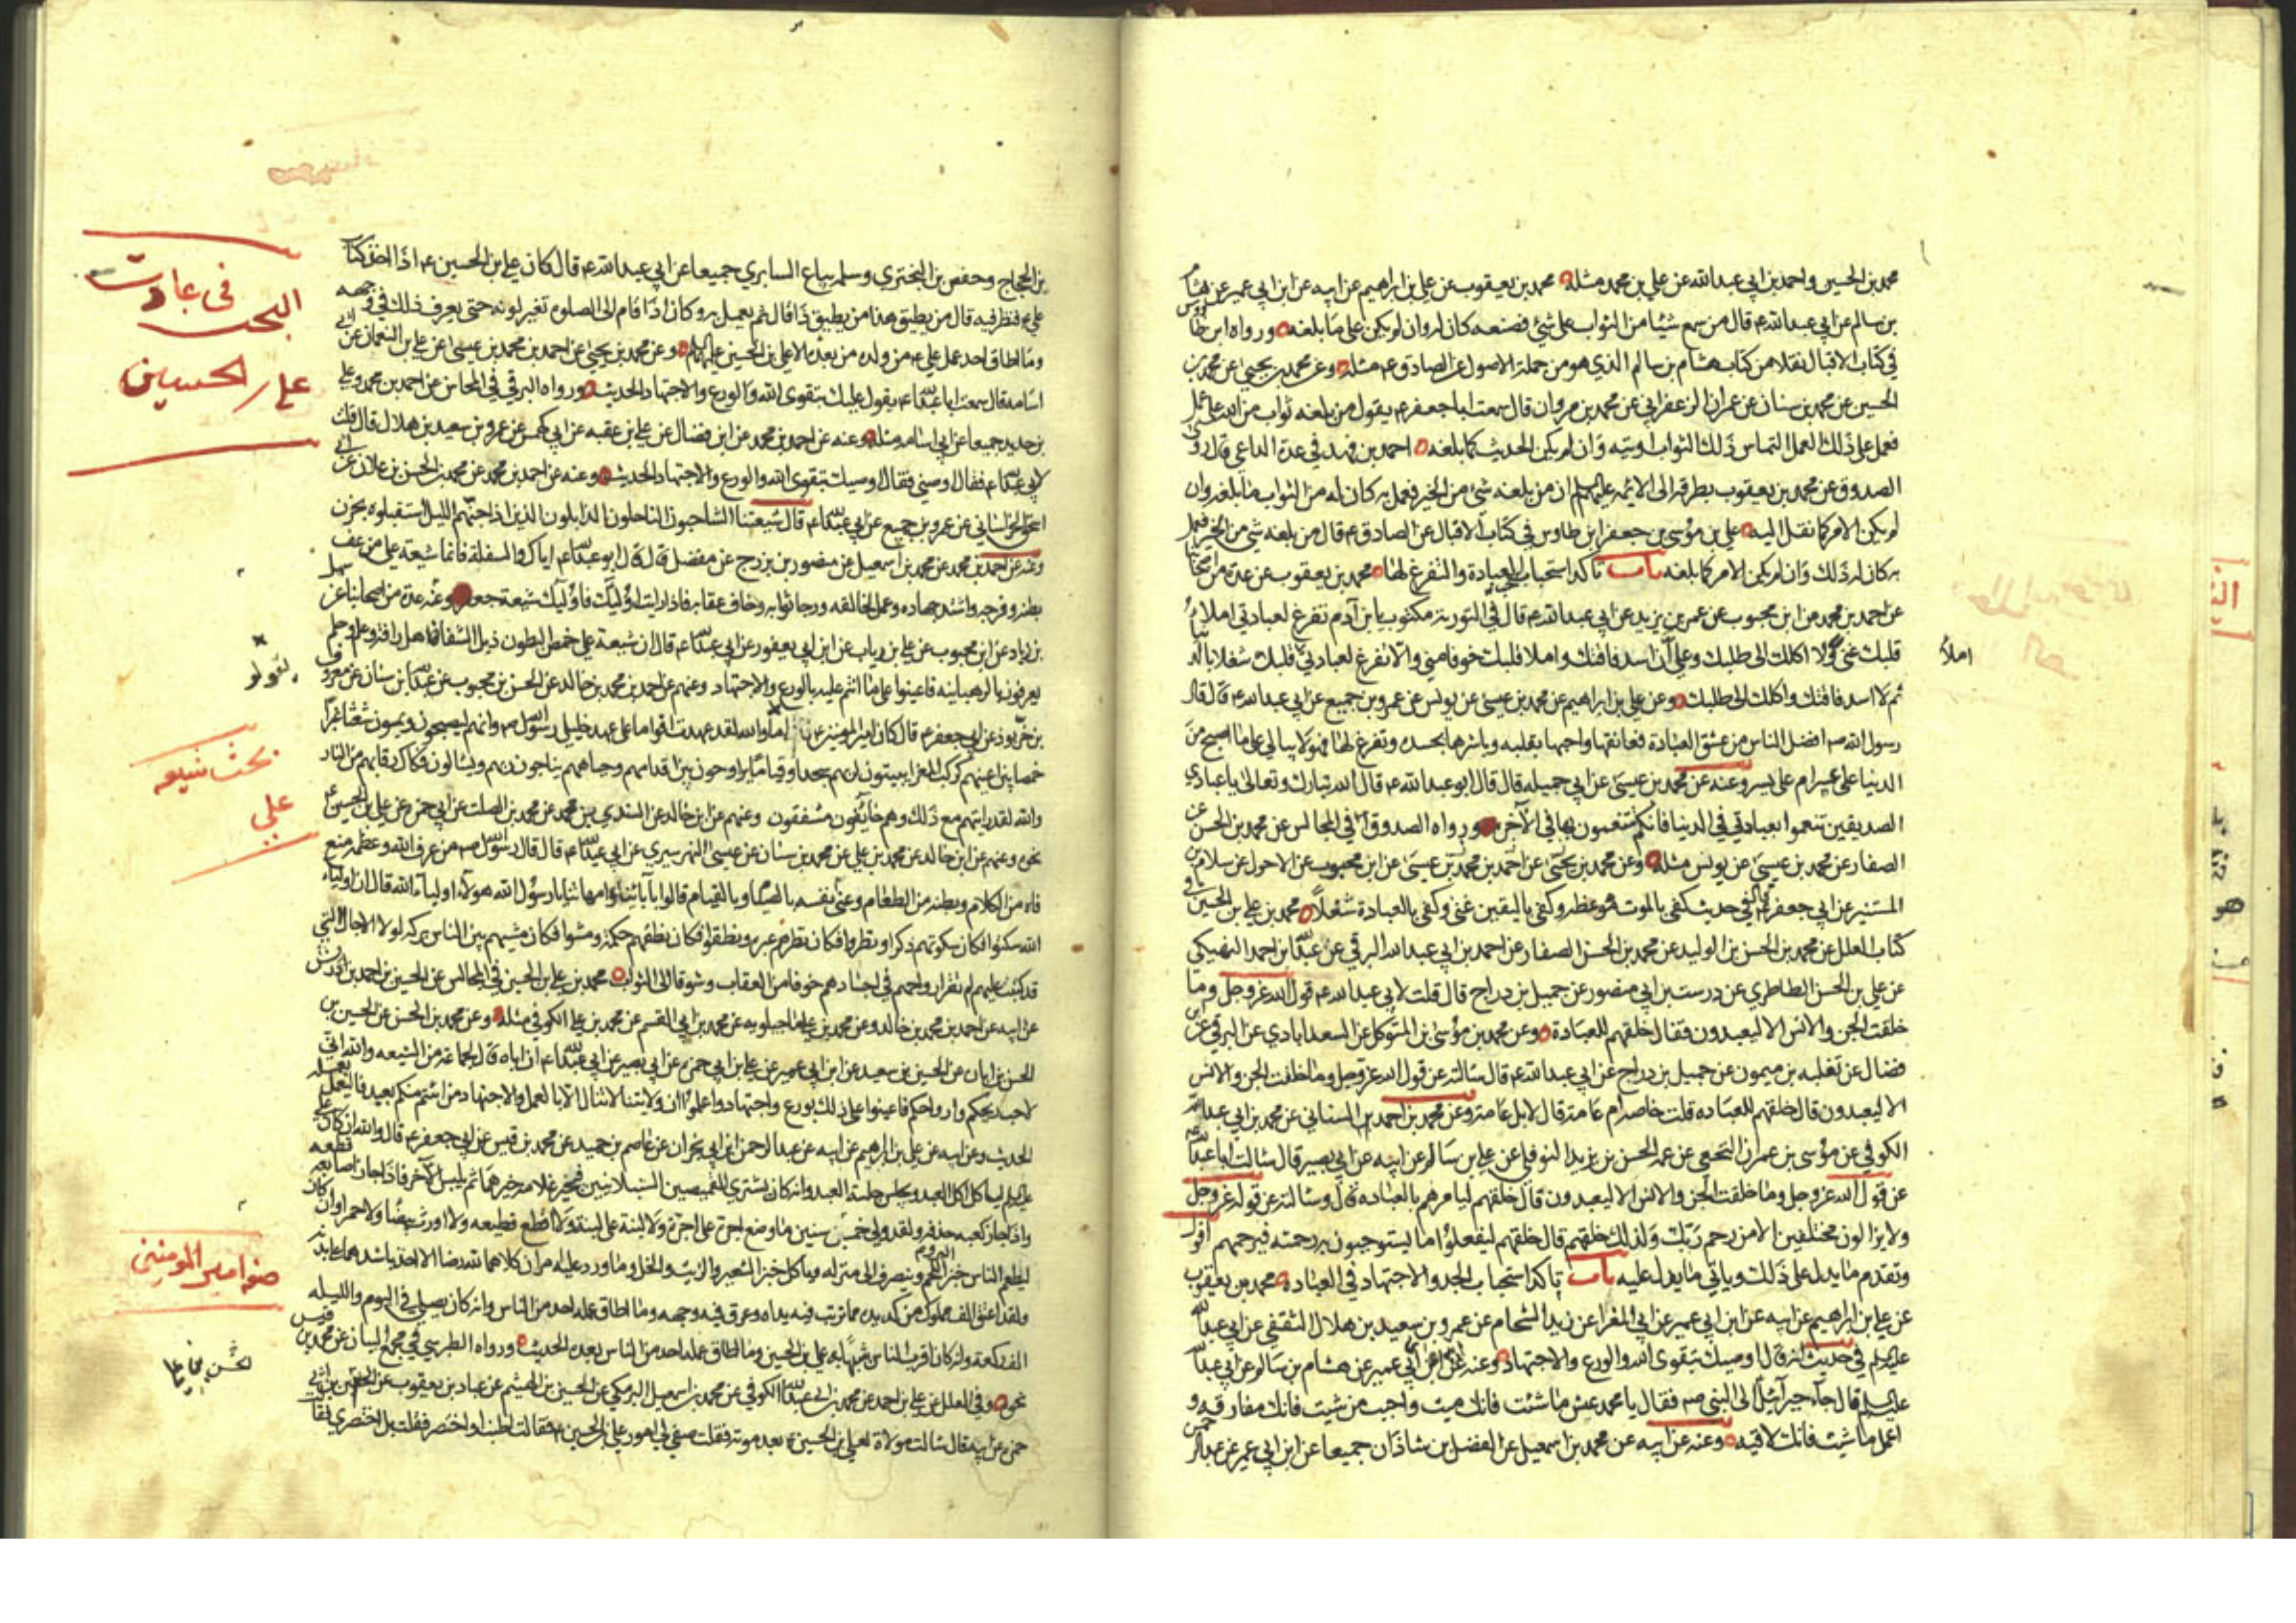 محمد بن الحسين واحمد بن ابي عبدالله عن علي بن محمد مثله محمد بن يعقوب عن علي بن ابراهيم عن ابيه عن ابن ابي عمير عن هشام
بن سالم عن ابي عبدالله ع قال من سمع شيئا من الثواب على شئ فصنعه كان له وان لم يكن على ما بلغه ورواه ابن طاوس
في كتاب الاقبال نقلا من كتاب هشام بن سالم الذي هو من جملة الاصول عن الصادق ع مثله وعن محمد بن يحيى عن محمد بن
الحسين عن محمد بن سنان عن عمران الزعفراني عن محمد بن مروان قال سمعت ابا جعفر ع يقول من بلغه ثواب من الله على عمل
فعمل ذلك العمل التماس ذلك الثواب اوتيه وان لم يكن الحديث كما بلغه احمد بن فهد في عدة الداعي قال روى
الصدوق عن محمد بن يعقوب بطرقه الى الائمه عليهم السلام ان من بلغه شئ من الخير فعمل به كان له من الثواب ما بلغه وان
لم يكن الامر كما نقل اليه علي بن موسى بن جعفر ابن طاوس في كتاب الاقبال عن الصادق ع قال من بلغه شئ من الخير فعمل
به كان له ذلك وان لم يكن الامر كما بلغه باب تأكد استحباب حب العبادة والتفرغ لها محمد بن يعقوب عن عدة من اصحابنا
عن احمد بن محمد عن ابن محبوب عن عمر بن يزيد عن ابي عبدالله ع قال في التورية مكتوب يا بن آدم تفرغ لعبادتي املاء
قلبك غنى ولا اكلك الى طلبك وعلي ان اسد فاقتك واملا قلبك خوفا مني والا تفرغ لعبادتي املا قلبك شغلا بالدنيا
ثم لا اسد فاقتك واكلك الى طلبك وعن علي بن ابراهيم عن محمد بن عيسى عن يونس عن عمرو بن جميع عن ابي عبدالله ع قال قال
رسول الله ص افضل الناس من عشق العبادة فعانقها واحبها بقلبه وباشرها بجسده وتفرغ لها فهو لا يبالي على ما اصبح من
الدنيا على عسر ام على يسر وعنه عن محمد بن عيسى عن ابي جميله قال قال ابو عبدالله ع قال الله تبارك وتعالى يا عبادي
الصديقين تنعموا بعبادتي في الدنيا فانكم تتنعمون بها في الآخرة ورواه الصدوق في المجالس عن محمد بن الحسن عن
الصفار عن محمد بن عيسى عن يونس مثله وعن محمد بن يحيى عن احمد بن محمد بن عيسى عن ابن محبوب عن الاحول عن سلام بن
المستنير عن ابي جعفر ع في حديث كفى بالموت موعظة وكفى باليقين غنى وكفى بالعبادة شغلا محمد بن علي بن الحسين في
كتاب العلل عن محمد بن الحسن بن الوليد عن محمد بن الحسن الصفار عن احمد بن ابي عبدالله البرقي عن عبدالله بن احمد النهيكي
عن علي بن الحسن الطاطري عن درست بن ابي منصور عن جميل بن دراج قال قلت لابي عبدالله ع قول الله عز وجل وما
خلقت الجن والانس الا ليعبدون فقال خلقهم للعبادة وعن محمد بن موسى بن المتوكل عن السعدابادي عن البرقي عن
فضال عن ثعلبه بن ميمون عن جميل بن دراج عن ابي عبدالله ع قال سألته عن قول الله عز وجل وما خلقت الجن والانس
الا ليعبدون قال خلقهم للعباده قلت خاصه ام عامه قال لا بل عامة وعن محمد بن احمد السناني عن محمد بن ابي عبدالله
الكوفي عن موسى بن عمران النخعي عن عمه الحسين بن يزيد النوفلي عن علي بن سالم عن ابيه عن ابي بصير قال سالت ابا عبدالله ع
عن قول الله عز وجل وما خلقت الجن والانس الا ليعبدون قال خلقهم ليامرهم بالعباده قال وسالته عن قوله عز وجل
ولا يزالون مختلفين الا من رحم ربك ولذلك خلقهم قال خلقهم ليفعلوا ما يستوجبون به رحمته فيرحمهم اقول
وتقدم ما يدل على ذلك وياتي ما يدل عليه باب تأكد استحباب الجد والاجتهاد في العباده محمد بن يعقوب
عن علي بن ابراهيم عن ابيه عن ابن ابي عمير عن ابي المغرا عن زيد الشحام عن عمرو بن سعيد بن هلال الثقفي عن ابي عبدالله
عليه السلام في حديث انه قال اوصيك بتقوى الله والورع والاجتهاد وعنه عن ابن ابي عمير عن هشام بن سالم عن ابي عبدالله
عليه السلام قال جاء جبرائيل الى النبي ص فقال يا محمد عش ما شئت فانك ميت واحبب من شئت فانك مفارقه و
اعمل ما شئت فانك لاقيه وعنه عن ابيه عن محمد بن اسمعيل عن الفضل بن شاذان جميعا عن ابن ابي عمير عن عبدالرحمن
املأ
بن الحجاج وحفص بن البختري وسلمه بياع السابري جميعا عن ابي عبدالله ع قال كان علي بن الحسين ع اذا اخذ كتاب
علي ع فنظر فيه قال من يطيق هذا من يطيق ذا قال ثم يعمل به وكان اذا قام الى الصلوه تغير لونه حتى يعرف ذلك في وجهه
وما اطاق احد عمل علي ع من ولده من بعده الا علي بن الحسين عليهما السلام وعن محمد بن يحيى عن احمد بن محمد بن عيسى عن علي بن النعمان عن ابي
اسامه قال سمعت ابا عبدالله ع يقول عليك بتقوى الله والورع والاجتهاد الحديث ورواه البرقي في المحاسن عن احمد بن محمد وعلي
بن حديد جميعا عن ابي اسامه مثله وعنه عن احمد بن محمد عن ابن فضال عن علي بن عقبه عن ابي كهمس عن عمرو بن سعيد بن هلال قال قلت
لابي عبدالله ع فقال اوصني فقال اوصيك بتقوى الله والورع والاجتهاد الحديث وعنه عن احمد بن محمد عن محمد بن الحسن بن علان عن ابي
اسحق الخراساني عن عمرو بن جميع عن ابي عبدالله ع قال شيعتنا الشاحبون الناحلون الذابلون الذين اذا جنهم الليل استقبلوه بحزن
وعنه عن احمد بن محمد عن محمد بن اسمعيل عن منصور بن بزرج عن مفضل قال قال ابو عبدالله ع اياك والسفلة فانما شيعة علي من عف
بطنه وفرجه واشتد جهاده وعمل لخالقه ورجا ثوابه وخاف عقابه فاذا رايت اولئك فاولئك شيعة جعفر وعنه عدة من اصحابنا عن سهل
بن زياد عن ابن محبوب عن علي بن رياب عن ابن ابي يعفور عن ابي عبدالله ع قال ان شيعة علي خمص البطون ذبل الشفاه اهل رافة وعلم وحلم
يعرفون بالرهبانيه فاعينوا على ما انتم عليه بالورع والاجتهاد وعنهم عن احمد بن محمد بن خالد عن الحسن بن محبوب عن عبدالله بن سنان عن معروف
بن خربوذ عن ابي جعفر ع قال كان امير المؤمنين ع اما والله لقد عهدت اقواما على عهد خليلي رسول الله ص وانهم ليصبحون ويمسون شعثا غبرا
خمصا بين اعينهم كركب المعزا يبيتون لربهم سجدا وقياما يراوحون بين اقدامهم وجباههم يناجون ربهم ويسالون فكاك رقابهم من النار
والله لقد رايتهم مع ذلك وهم خائفون مشفقون وعنهم عن ابن خالد عن السندي بن محمد عن محمد بن الصلت عن ابي حمزه عن علي بن الحسين ع
نحوه وعنهم عن ابن خالد عن محمد بن علي عن محمد بن سنان عن عيسى النهرسيري عن ابي عبدالله ع قال قال رسول الله ص من عرف الله وعظمه منع
فاه من الكلام وبطنه من الطعام وعنى نفسه بالصيام وبالقيام قالوا بآبائنا وامهاتنا يا رسول الله هولاء اولياء الله قال ان اولياء
الله سكتوا فكان سكوتهم ذكرا ونظروا فكان نظرهم عبره ونطقوا فكان نطقهم حكمة ومشوا فكان مشيهم بين الناس بركه لولا الاجال التي
قد كتبت عليهم لم تقر ارواحهم في اجسادهم خوفا من العقاب وشوقا الى الثواب محمد بن علي بن الحسين في المجالس عن الحسين بن احمد بن ادريس
عن ابيه عن احمد بن محمد بن خالد وعن محمد بن علي ماجيلويه عن محمد بن ابي القسم عن محمد بن علي الكوفي مثله وعن محمد بن الحسن عن الحسين بن
الحسن بن ابان عن الحسين بن سعيد عن ابن ابي عمير عن علي بن ابي حمزه عن ابي بصير عن ابي عبدالله ع ان اباه قال لجماعة من الشيعه والله اني
لاحب ريحكم وارواحكم فاعينوا على ذلك بورع واجتهاد واعلموا ان ولايتنا لا تنال الا بالعمل والاجتهاد من ائتم منكم بعبد فليعمل بعمله
الحديث وعن ابيه عن علي بن ابراهيم عن ابيه عن عبدالرحمن ابن ابي نجران عن عاصم بن حميد عن محمد بن قيس عن ابي جعفر ع قال والله ان كان علي
عليه السلام لياكل اكل العبد ويجلس جلسة العبد وان كان يشتري القميصين السنبلانيين فيخير غلامه خيرهما ثم يلبس الآخر فاذا جاز اصابعه قطعه
واذا جاز كعبه حذفه ولقد ولي خمس سنين ما وضع اجرة على اجرة ولا لبنة على لبنة ولا اقطع قطيعه ولا اورث بيضا ولا حمرا وان كان
ليطعم الناس خبز البر واللحم وينصرف الى منزله وياكل خبز الشعير والزيت والخل وما ورد عليه امران كلاهما لله رضا الا اخذ باشدهما على بدنه
ولقد اعتق الف مملوك من كد يده مما تربت فيه يداه وعرق فيه وجهه وما اطاق عمله احد من الناس وان كان يصلي في اليوم والليله
الف ركعة وان كان اقرب الناس شبها به علي بن الحسين وما اطاق عمله احد من الناس بعده الحديث ورواه الطبرسي في مجمع البيان عن محمد بن قيس
نحوه وفي العلل عن علي بن احمد عن محمد بن ابي عبدالله الكوفي عن محمد بن اسمعيل البرمكي عن الحسين بن الهيثم عن عباد بن يعقوب عن الحسن بن علي بن ابي
حمزة عن ابيه قال سالت مولاة لعلي بن الحسين ع بعد موته فقلت صفي لي امور علي بن الحسين ع فقالت اطنب او اختصر فقلت بل اختصري قالت
في عبادت
علي الحسين
بحث شيعه
علي
صفه امير المومنين